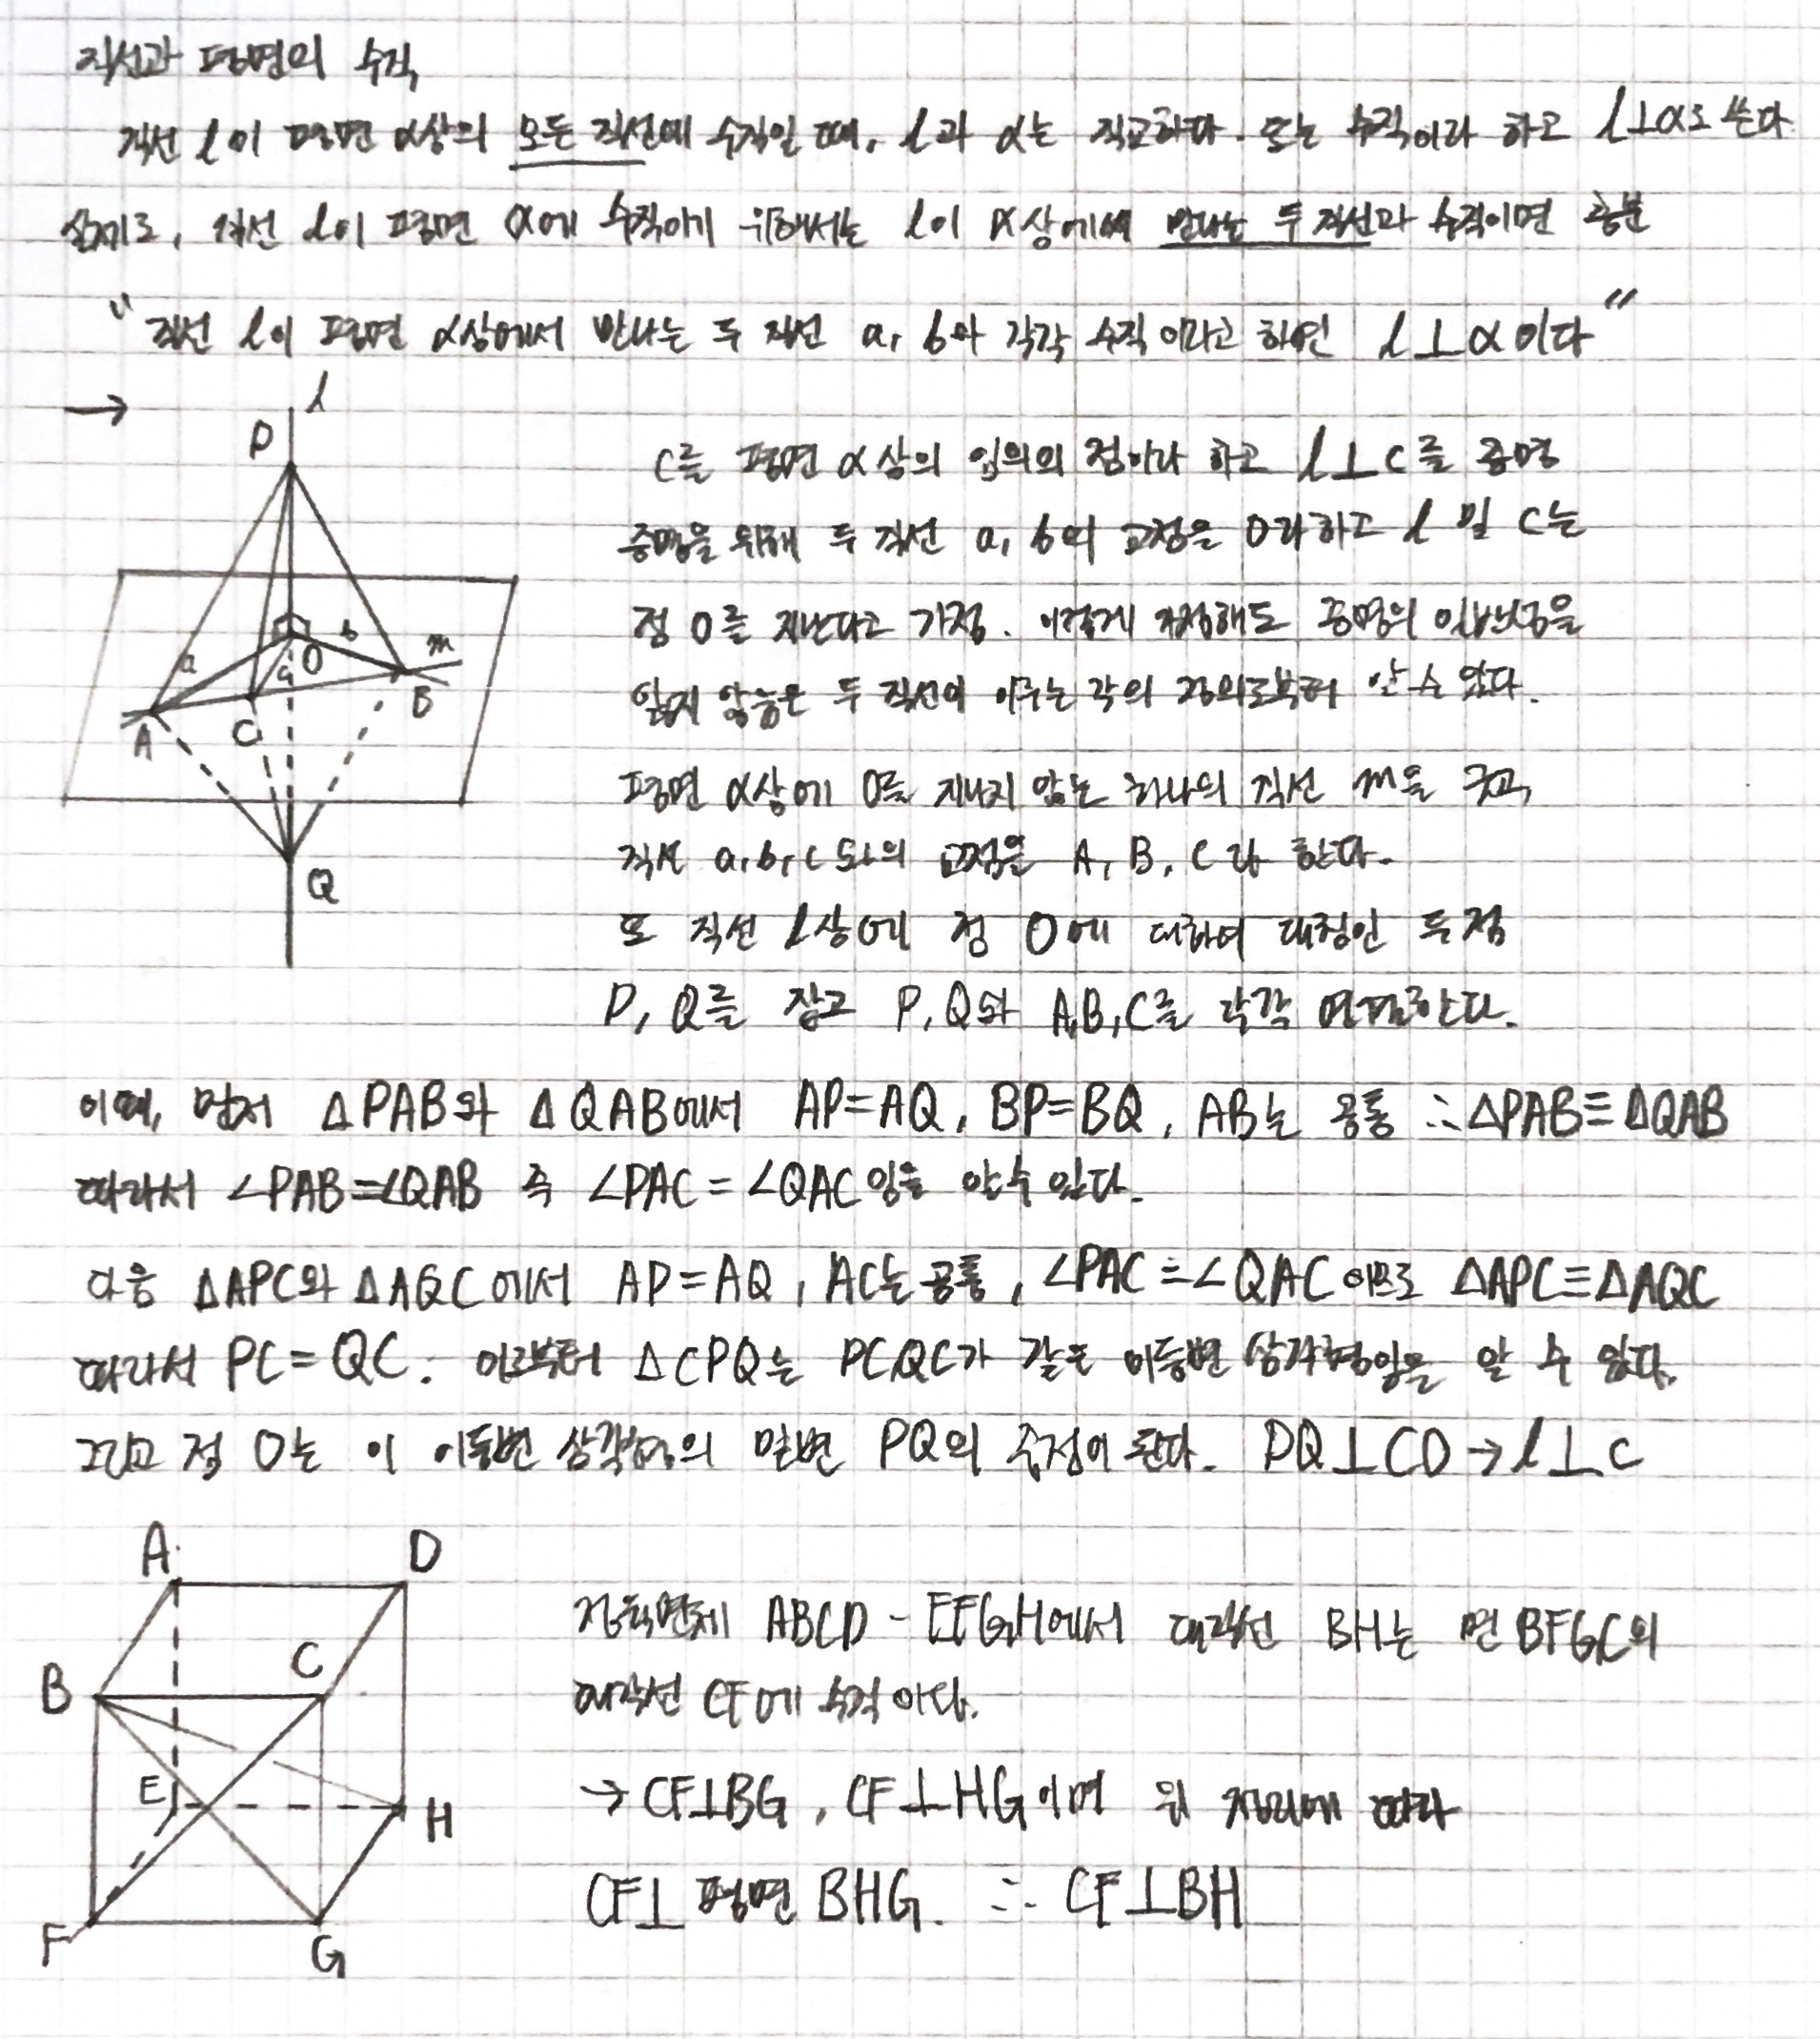 직선과 평면의 수직
직선 l이 평면 α상의 모든 직선에 수직일 때, l과 α는 직교하다. 또는 수직이라 하고 l⊥α로 쓴다
실제로, 직선 l이 평면 α에 수직이기 위해서는 l이 α상에서 만나는 두 직선과 수직이면 충분
"직선 l이 평면 α상에서 만나는 두 직선 a, b와 각각 수직이라고 하면 l⊥α이다"
→
l
P
a
b
c
O
m
A
C
B
Q
c를 평면 α상의 임의의 점이라 하고 l⊥c를 증명
증명을 위해 두 직선 a, b의 교점을 O라하고 l 및 c는
점 O를 지난다고 가정. 이렇게 가정해도 증명의 일반성을
잃지 않음은 두 직선이 이루는 각의 정의로부터 알 수 있다.
평면 α상에 O를 지나지 않는 하나의 직선 m을 긋고,
직선 a, b, c와의 교점을 A, B, C라 한다.
또 직선 l상에 점 O에 대하여 대칭인 두 점
P, Q를 잡고 P, Q와 A,B,C를 각각 연결한다.
이때, 먼저 △PAB와 △QAB에서 AP=AQ, BP=BQ, AB는 공통 ∴△PAB≡△QAB
따라서 ∠PAB=∠QAB 즉 ∠PAC=∠QAC임을 알 수 있다.
다음 △APC와 △AQC에서 AP=AQ, AC는 공통, ∠PAC=∠QAC이므로 △APC≡△AQC
따라서 PC=QC. 이로부터 △CPQ는 PC,QC가 같은 이등변 삼각형임을 알 수 있다.
그리고 점 O는 이 이등변 삼각형의 밑변 PQ의 중점이 된다. PQ⊥CO→l⊥c
A
D
B
C
E
H
F
G
정육면체 ABCD-EFGH에서 대각선 BH는 면 BFGC의
대각선 CF에 수직이다.
→CF⊥BG, CF⊥HG이며 위 정리에 따라
CF⊥평면 BHG. ∴ CF⊥BH